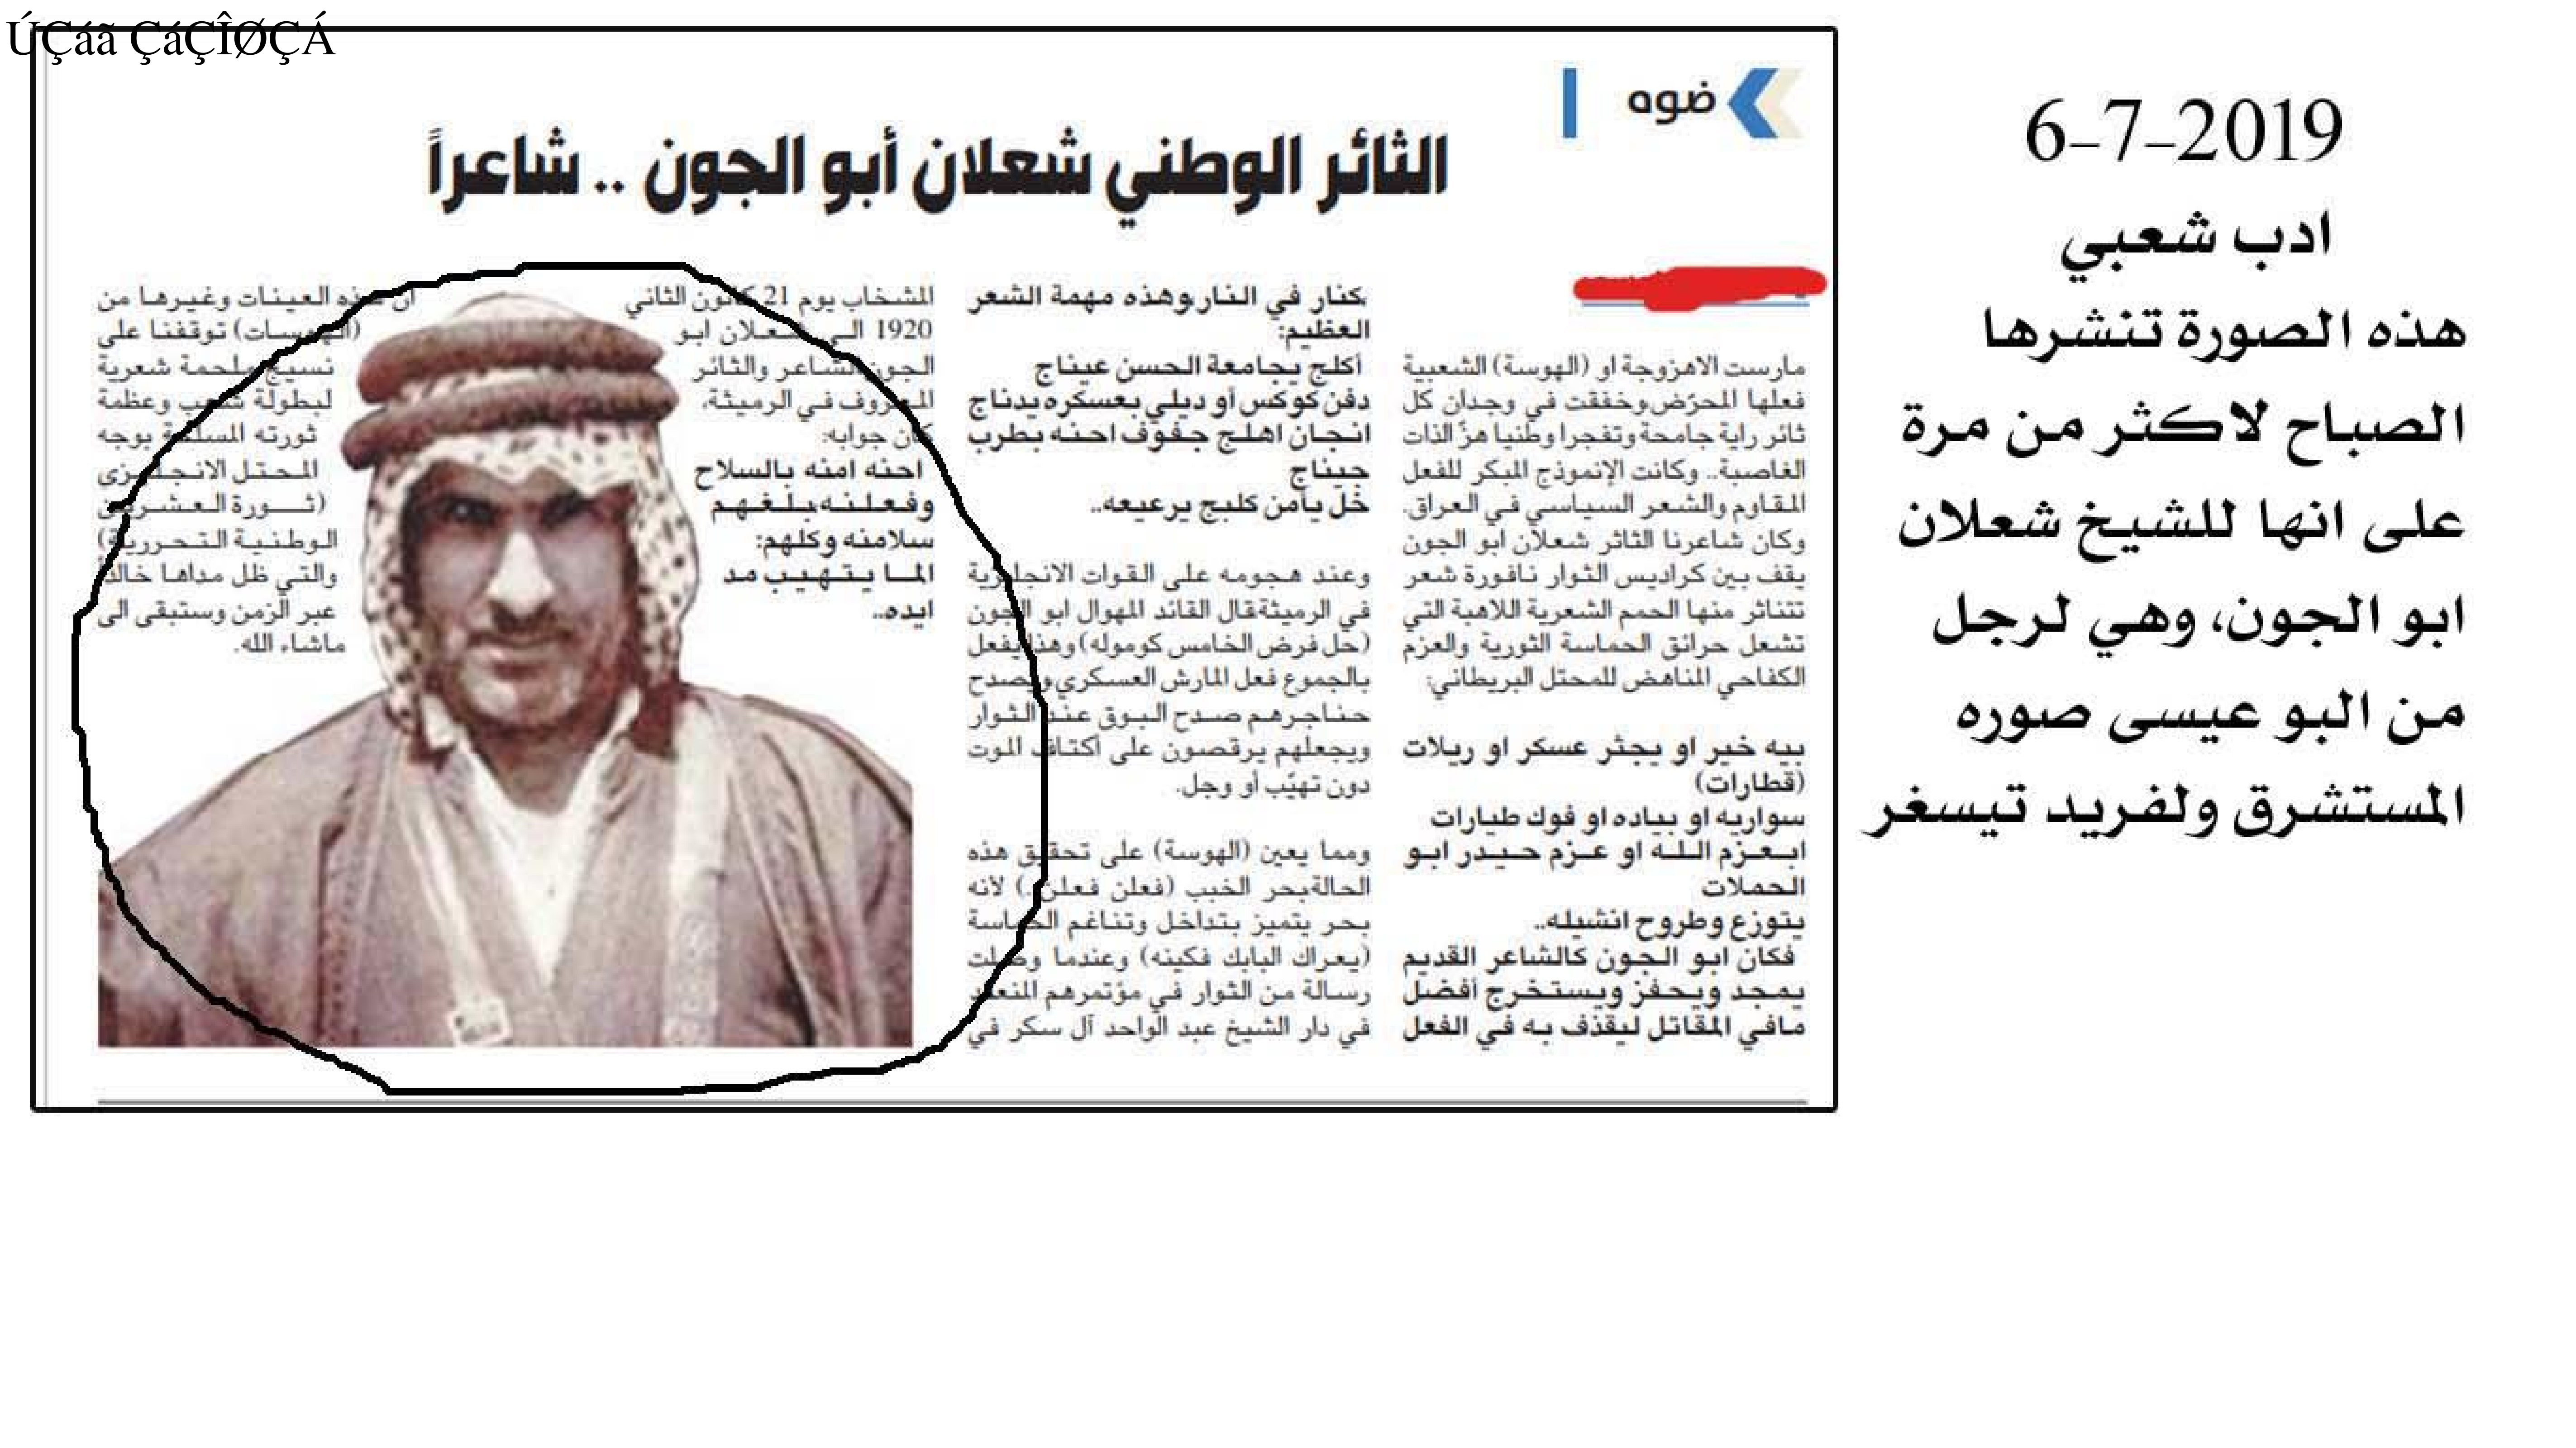 ÚÇáã ÇáÇÎØÇÁ
6-7-2019
ادب شعبي
هذه الصورة تنشرها
الصباح لاكثر من مرة
على انها للشيخ شعلان
ابو الجون، وهي لرجل
من البو عيسى صوره
المستشرق ولفريد تيسغر
ضوه
الثائر الوطني شعلان أبو الجون .. شاعراً
مارست الاهزوجة او (الهوسة) الشعبية
فعلها المحرّض وخفقت في وجدان كل
ثائر راية جامحة وتفجرا وطنيا هزّ الذات
الغاصبة.. وكانت الإنموذج المبكر للفعل
المقاوم والشعر السياسي في العراق.
وكان شاعرنا الثائر شعلان ابو الجون
يقف بين كراديس الثوار نافورة شعر
تتناثر منها الحمم الشعرية اللاهبة التي
تشعل حرائق الحماسة الثورية والعزم
الكفاحي المناهض للمحتل البريطاني:
بيه خير او يجثر عسكر او ريلات
(قطارات)
سواريه او بياده او فوك طيارات
ابعزم الله او عزم حيدر ابو
الحملات
يتوزع وطروح انشيله..
فكان ابو الجون كالشاعر القديم
يمجد ويحفز ويستخرج أفضل
مافي المقاتل ليقذف به في الفعل
كنار في النار وهذه مهمة الشعر
العظيم:
أكلج يجامعة الحسن عيناج
دفن كوكس أو ديلي بعسكره يدناج
انجان اهلج جفوف احنه بطرب
جيناج
خل يامن كلبج يرعيعه..
وعند هجومه على القوات الانجليزية
في الرميثة قال القائد المهوال ابو الجون
(حل فرض الخامس كوموله) وهذا يفعل
بالجموع فعل المارش العسكري ويصدح
حناجرهم صدح البوق عند الثوار
ويجعلهم يرقصون على اكتاف الموت
دون تهيّب أو وجل.
ومما يعين (الهوسة) على تحقيق هذه
الحالة بحر الخبب (فعلن فعلن.) لأنه
بحر يتميز بتداخل وتناغم الحماسة
(يعراك البابك فكينه) وعندما وصلت
رسالة من الثوار في مؤتمرهم المنعقد
في دار الشيخ عبد الواحد آل سكر في
المشخاب يوم 21 كانون الثاني
1920 الى شعلان ابو
الجون الشاعر والثائر
المعروف في الرميثة،
كان جوابه:
احنه امنه بالسلاح
وفعلنه بلغهم
سلامنه وكلهم:
الما يتهيب مد
ايده..
ان هذه العينات وغيرها من
(الهوسات) توقفنا على
نسيج ملحمة شعرية
لبطولة شعب وعظمة
ثورته المسلحة بوجه
المحتل الانجليزي
(ثورة العشرين
الوطنية التحررية)
والتي ظل مداها خالدا
عبر الزمن وستبقى الى
ماشاء الله.